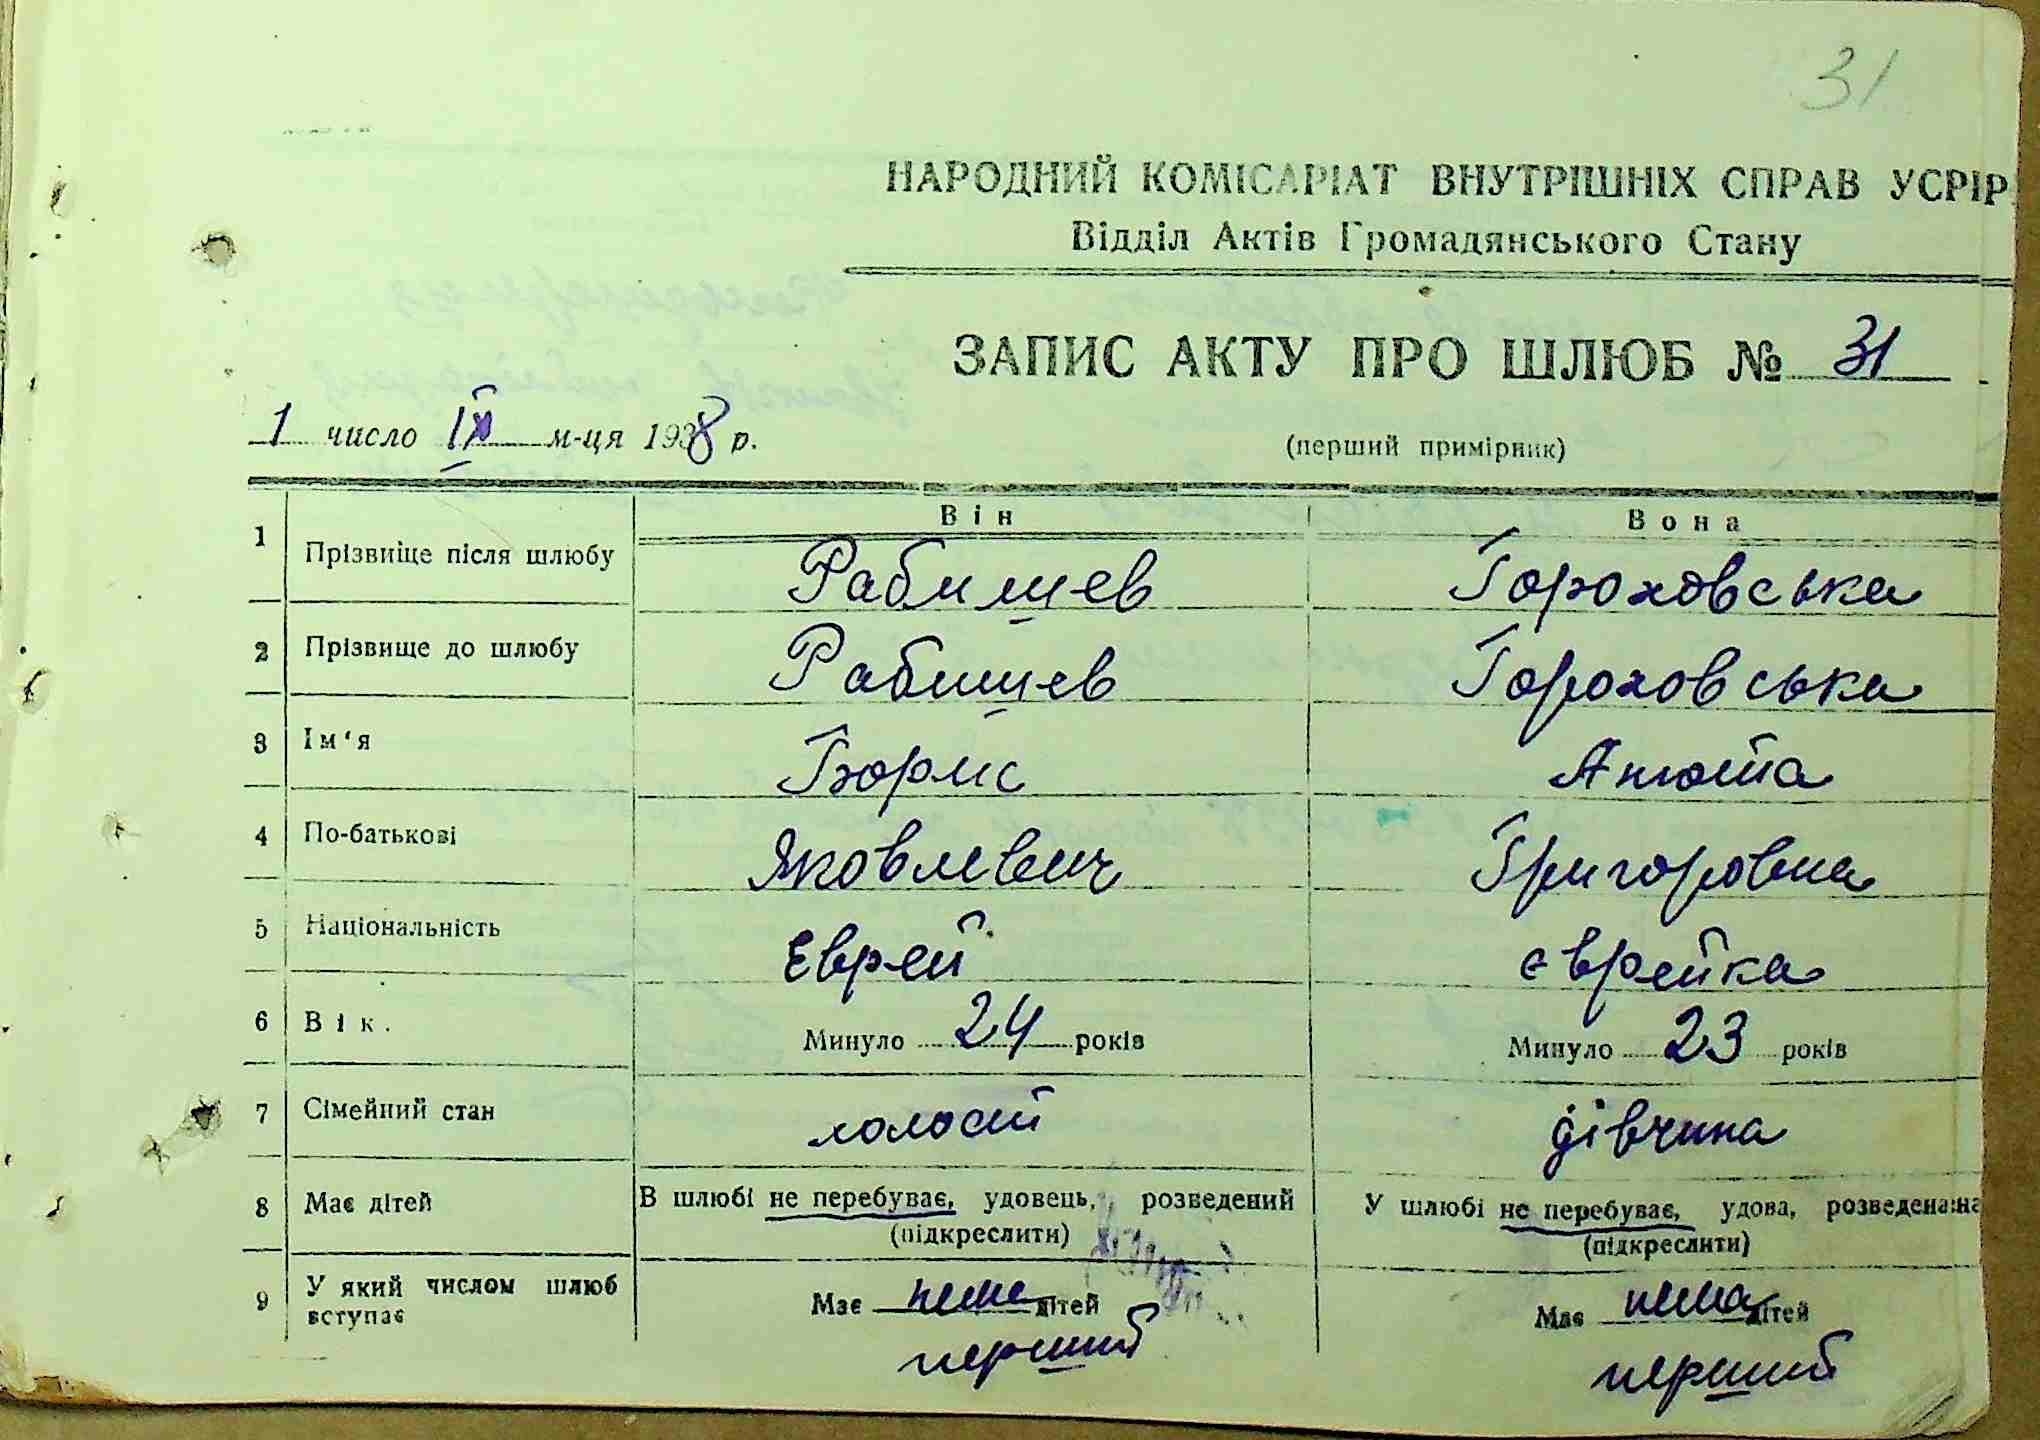 31
НАРОДНИЙ КОМІСАРІАТ ВНУТРІШНІХ СПРАВ УСРІР
Відділ Актів Громадянського Стану
ЗАПИС АКТУ ПРО ШЛЮБ № 31
1 число IX м-ця 1938 р.
(перший примірник)
Він Вона
1 Прізвище після шлюбу Рабишев Гороховська
2 Прізвище до шлюбу Рабишев Гороховська
3 Ім'я Борис Анюта
4 По-батькові Яковлевич Григоровна
5 Національність Єврей єврейка
6 Вік. Минуло 24 років Минуло 23 років
7 Сімейний стан холостий дівчина
8 Має дітей В шлюбі не перебуває, удовець, розведений У шлюбі не перебуває, удова, розведена
(підкреслити) (підкреслити)
9 У який числом шлюб вступає Має нема дітей Має нема дітей
перший перший